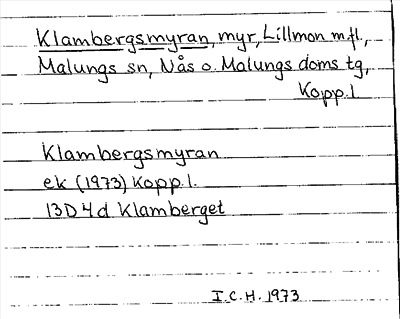 Klambergsmyran, myr, Lillmon m.fl.,
Malungs sn, Nås o. Malungs doms tg,
Kopp. l
Klambergsmyran
ek (1973) Kopp. l.
13D 4d Klamberget
I.C.H. 1973